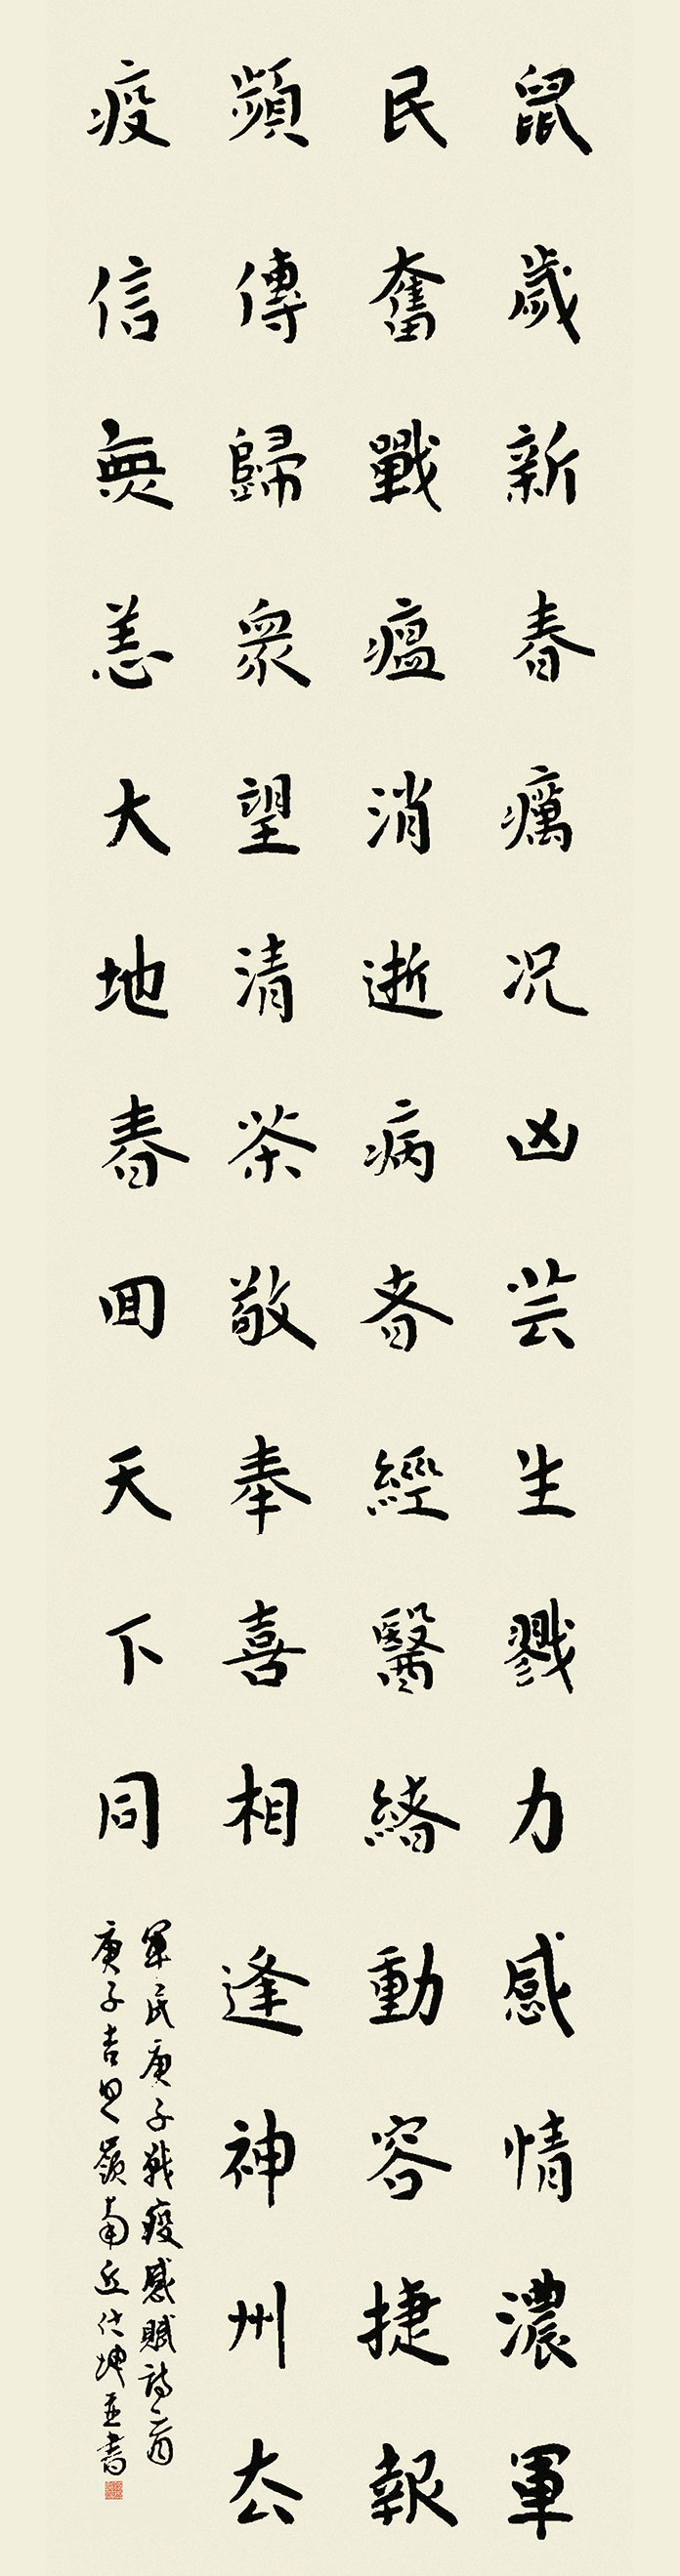 鼠歲新春癘况凶芸生戮力感情濃軍
民奮戰瘟消逝病者經醫緒動容捷報
頻傳歸衆望清茶敬奉喜相逢神州厺
疫信無恙大地春囬天下同
軍民庚子戰疫感賦詩一首
庚子吉旦嶺南丘仕坤並書